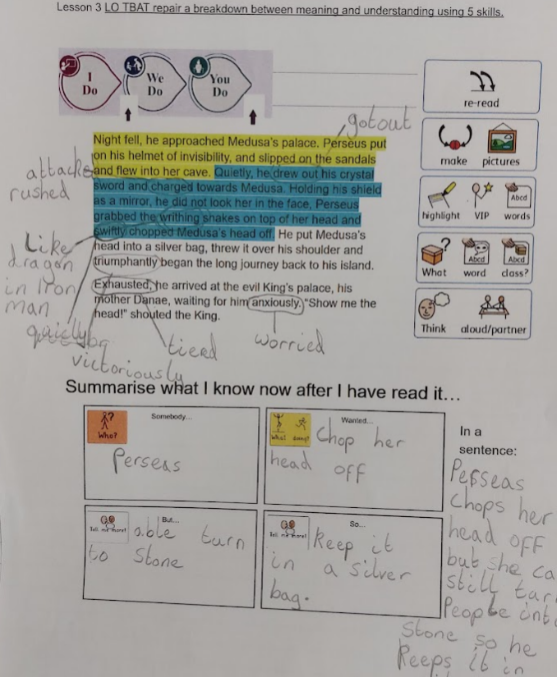 Lesson 3 LO TBAT repair a breakdown between meaning and understanding using 5 skills.
I Do
We Do
You Do
re-read
make pictures
highlight VIP words
Abcd
What word class?
Abcd Abcd
Think aloud/partner
got out
Night fell, he approached Medusa's palace. Perseus put
on his helmet of invisibility, and slipped on the sandals
and flew into her cave. Quietly, he drew out his crystal
sword and charged towards Medusa. Holding his shield
as a mirror, he did not look her in the face. Perseus
grabbed the writhing shakes on top of her head and
swiftly chopped Medusa's head off. He put Medusa's
head into a silver bag, threw it over his shoulder and
triumphantly began the long journey back to his island.
Exhausted, he arrived at the evil King's palace, his
mother Danae, waiting for him anxiously. "Show me the
head!" shouted the King.
attacks
rushed
Like
dragon
in Iron
man
victoriously
tired
worried
Summarise what I know now after I have read it…
Somebody...
Who?
Perseas
Wanted...
Chop her
head off
But...
able turn
to Stone
So...
Keep it
in a silver
bag.
In a
sentence:
Perseas
Chops her
head off
but she ca
still tur
People int
Stone so he
Keeps it in